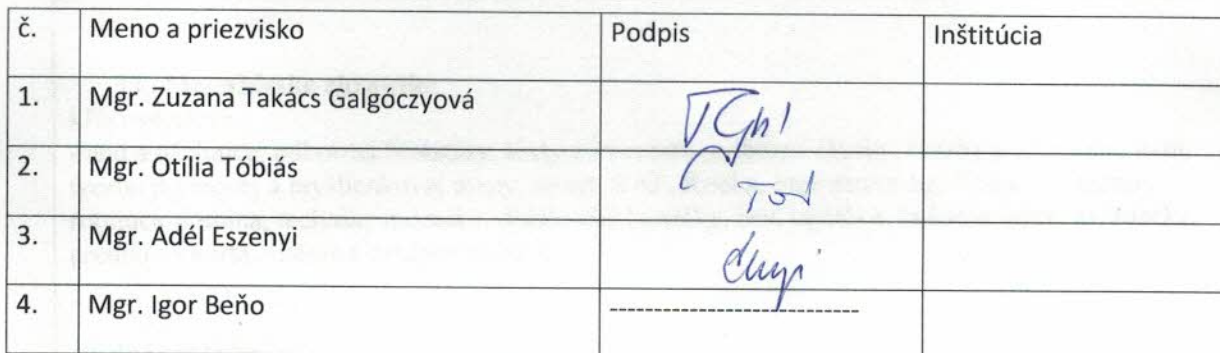 č. Meno a priezvisko Podpis Inštitúcia
1. Mgr. Zuzana Takács Galgóczyová
2. Mgr. Otília Tóbiás
3. Mgr. Adél Eszenyi
4. Mgr. Igor Beňo ---------------------------